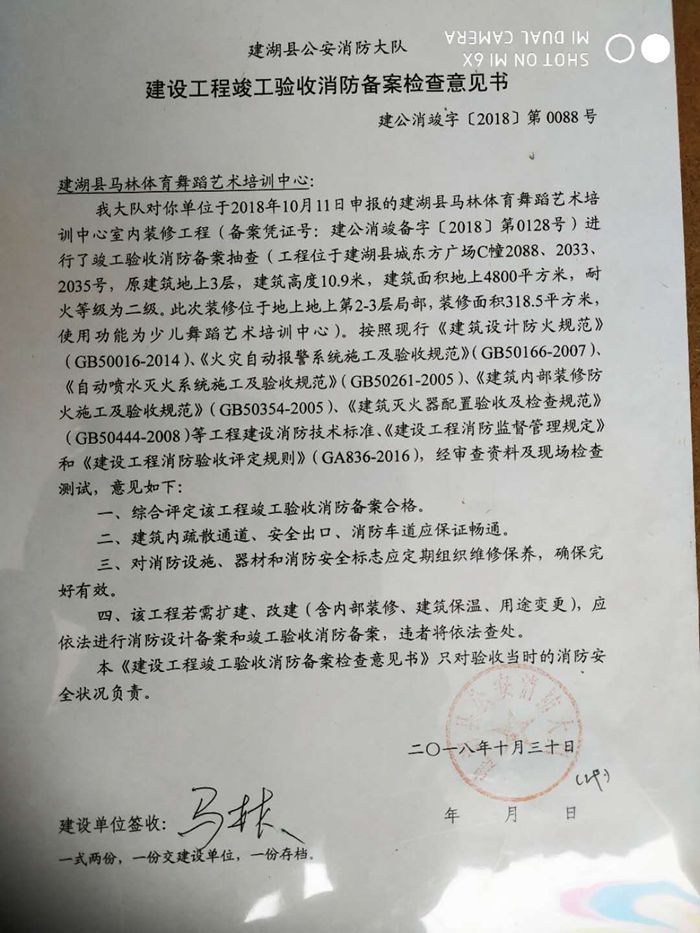 SHOT ON MI 6X
MI DUAL CAMERA
建湖县公安消防大队
建设工程竣工验收消防备案检查意见书
建公消竣字〔2018〕第0088号
建湖县马林体育舞蹈艺术培训中心：
我大队对你单位于2018年10月11日申报的建湖县马林体育舞蹈艺术培
训中心室内装修工程（备案凭证号：建公消竣备字〔2018〕第0128号）进
行了竣工验收消防备案抽查（工程位于建湖县城东方广场C幢2088、2033、
2035号，原建筑地上3层，建筑高度10.9米，建筑面积地上4800平方米，耐
火等级为二级。此次装修位于地上地上第2-3层局部，装修面积318.5平方米，
使用功能为少儿舞蹈艺术培训中心）。按照现行《建筑设计防火规范》
（GB50016-2014）、《火灾自动报警系统施工及验收规范》（GB50166-2007）、
《自动喷水灭火系统施工及验收规范》（GB50261-2005）、《建筑内部装修防
火施工及验收规范》（GB50354-2005）、《建筑灭火器配置验收及检查规范》
（GB50444-2008）等工程建设消防技术标准、《建设工程消防监督管理规定》
和《建设工程消防验收评定规则》（GA836-2016），经审查资料及现场检查
测试，意见如下：
一、综合评定该工程竣工验收消防备案合格。
二、建筑内疏散通道、安全出口、消防车道应保证畅通。
三、对消防设施、器材和消防安全标志应定期组织维修保养，确保完
好有效。
四、该工程若需扩建、改建（含内部装修、建筑保温、用途变更），应
依法进行消防设计备案和竣工验收消防备案，违者将依法查处。
本《建设工程竣工验收消防备案检查意见书》只对验收当时的消防安
全状况负责。
县公安消防大
二〇一八年十月三十日
年 月 日
建设单位签收：马林
一式两份，一份交建设单位，一份存档。